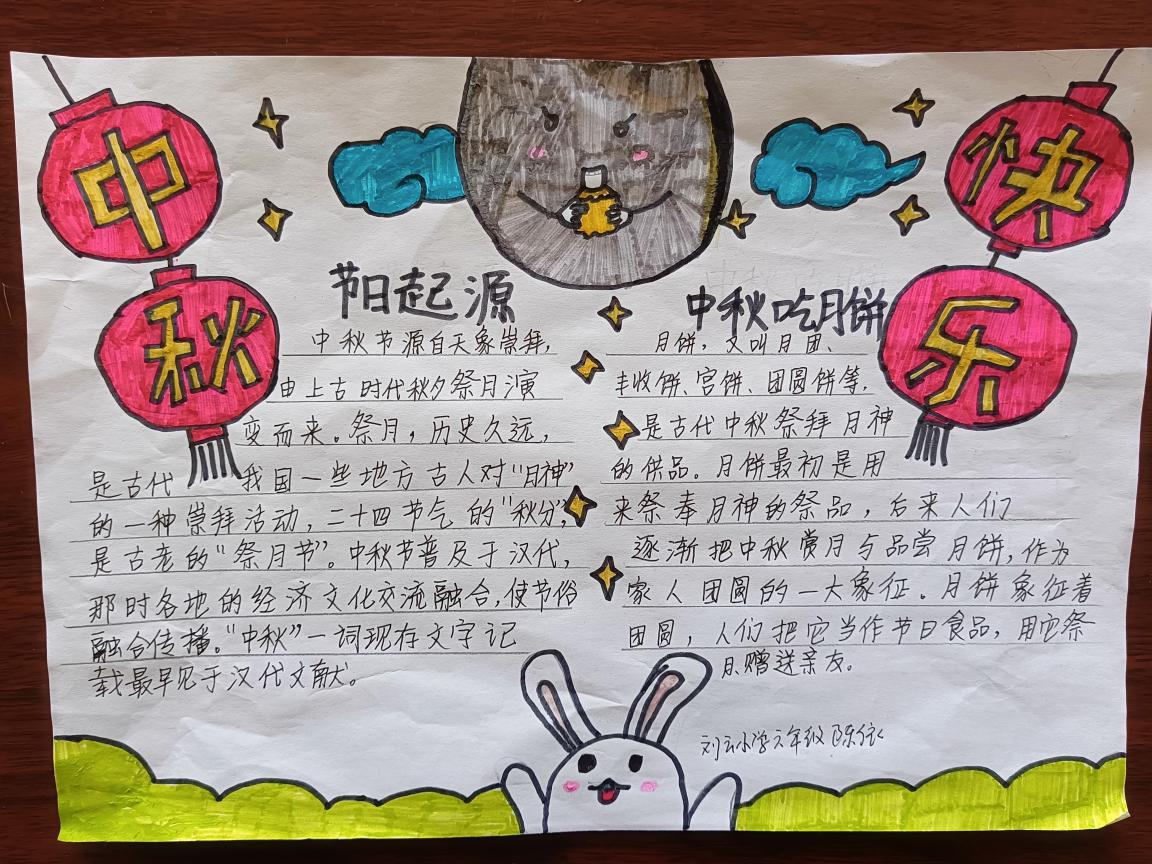 中
秋
快
乐
节日起源
中秋节源自天象崇拜,
由上古时代秋夕祭月演
变而来。祭月,历史久远,
是古代 我国一些地方古人对“月神”
的一种崇拜活动,二十四节气的“秋分”,
是古老的“祭月节”。中秋节普及于汉代,
那时各地的经济文化交流融合,使节俗
融合传播。“中秋”一词现存文字记
载最早见于汉代文献。
中秋吃月饼
月饼,又叫月团、
丰收饼、宫饼、团圆饼等,
是古代中秋祭拜月神
的供品。月饼最初是用
来祭奉月神的祭品,后来人们
逐渐把中秋赏月与品尝月饼,作为
家人团圆的一大象征。月饼象征着
团圆,人们把它当作节日食品,用它祭
月赠送亲友。
刘云小学六年级 陈